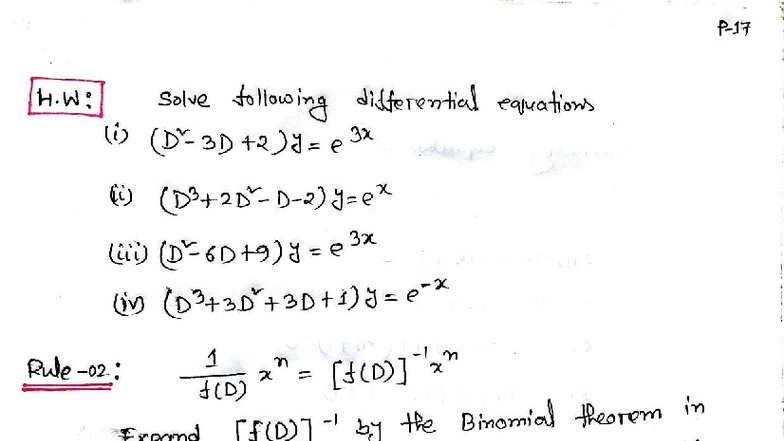 P-17
H.W: Solve following differential equations
(i) (D² - 3D + 2)y = e^3x
(ii) (D³ + 2D² - D - 2) y = e^x
(iii) (D² - 6D + 9) y = e^3x
(iv) (D³ + 3D² + 3D + 1) y = e^-x
Rule-02: 1/f(D) x^n = [f(D)]^-1 x^n
Expand [f(D)]^-1 by the Binomial theorem in